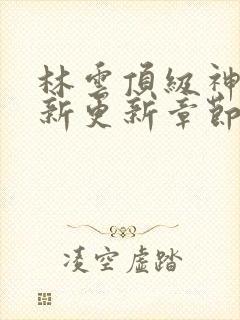 林雲頂級神
新更新章節
凌空虛踏